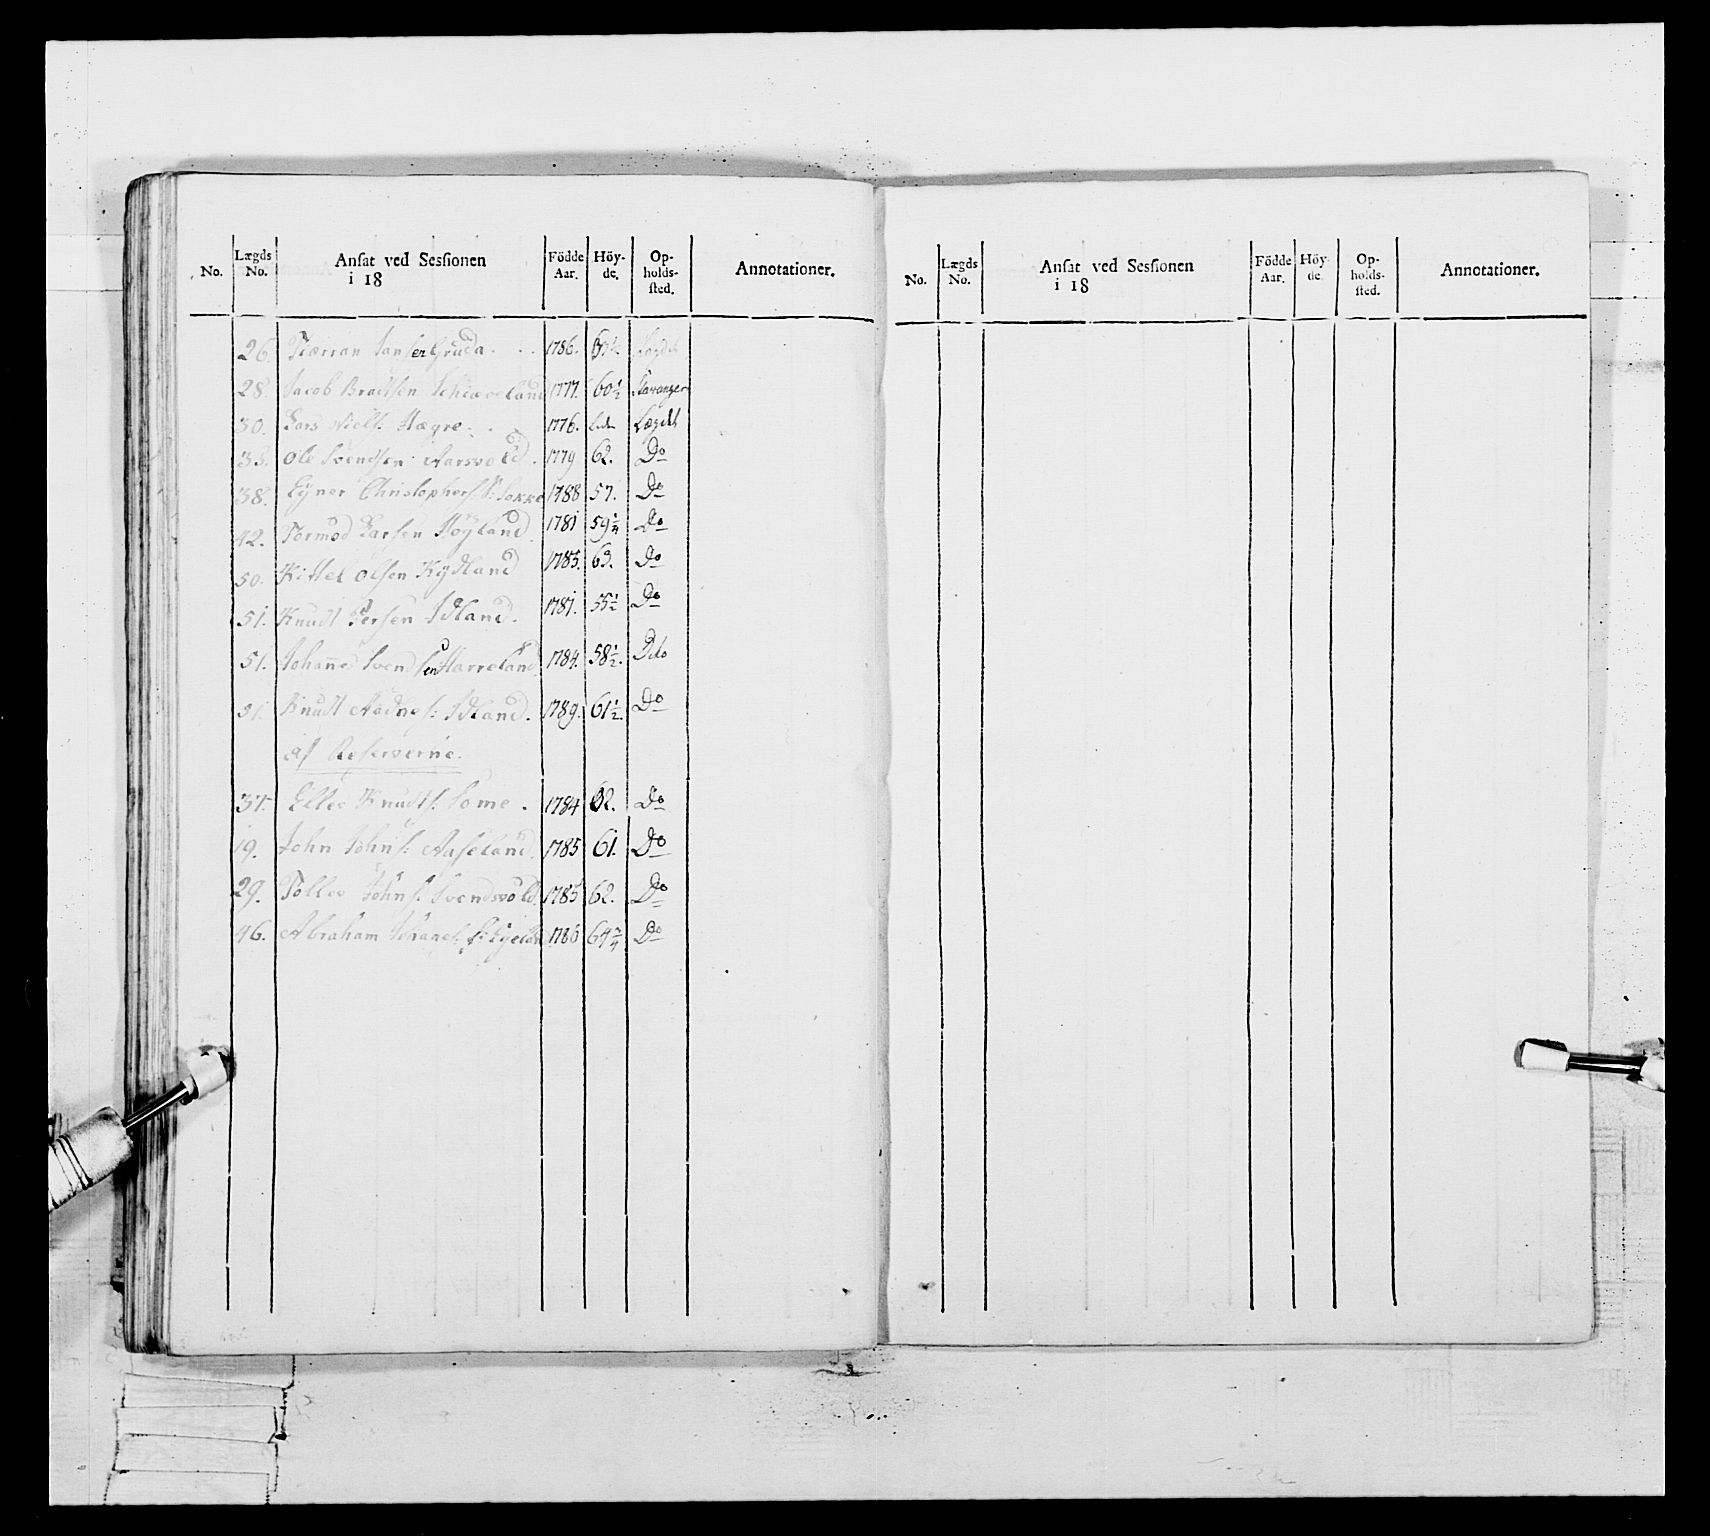 No. Lægds No. Ansat ved Sessionen i 18 Födde Aar. Höy-de. Op-holds-sted. Annotationer.
26 Tiærran Jansen Gruda . . . 1786. Lægdet
28. Jacob Bradtsen Schiæveland 1777. 60½ Stavanger
30. Lars Niels: Hægre . . 1776. Lægdet
35. Ole Svendsen Aarsvold . 1779 62. Do
38. Ejner Christophers: 1788 57. Do
42. Tormod Larsen Höyland 1781 59¼ Do
50. Kittel Olsen Kydland 1785. 63. Do
51. Knudt Persen Idland. 1781. 55½ Do
51. Johannes Svendsen Harreland 1784. 58½. Dito
51. Knudt Aadnes: Idland. 1789. 61½. Do
af Reserverne.
37. Ellev Knudts: Some . 1784 62. Do
19. John Johns: Aaseland. 1785 61. Do
29. Tollev Johns: Svendsvold. 1785 62. Do
46. Abraham Egeland 64¾ Do
No. Lægds No. Ansat ved Sessionen i 18 Födde Aar. Höy-de. Op-holds-sted. Annotationer.